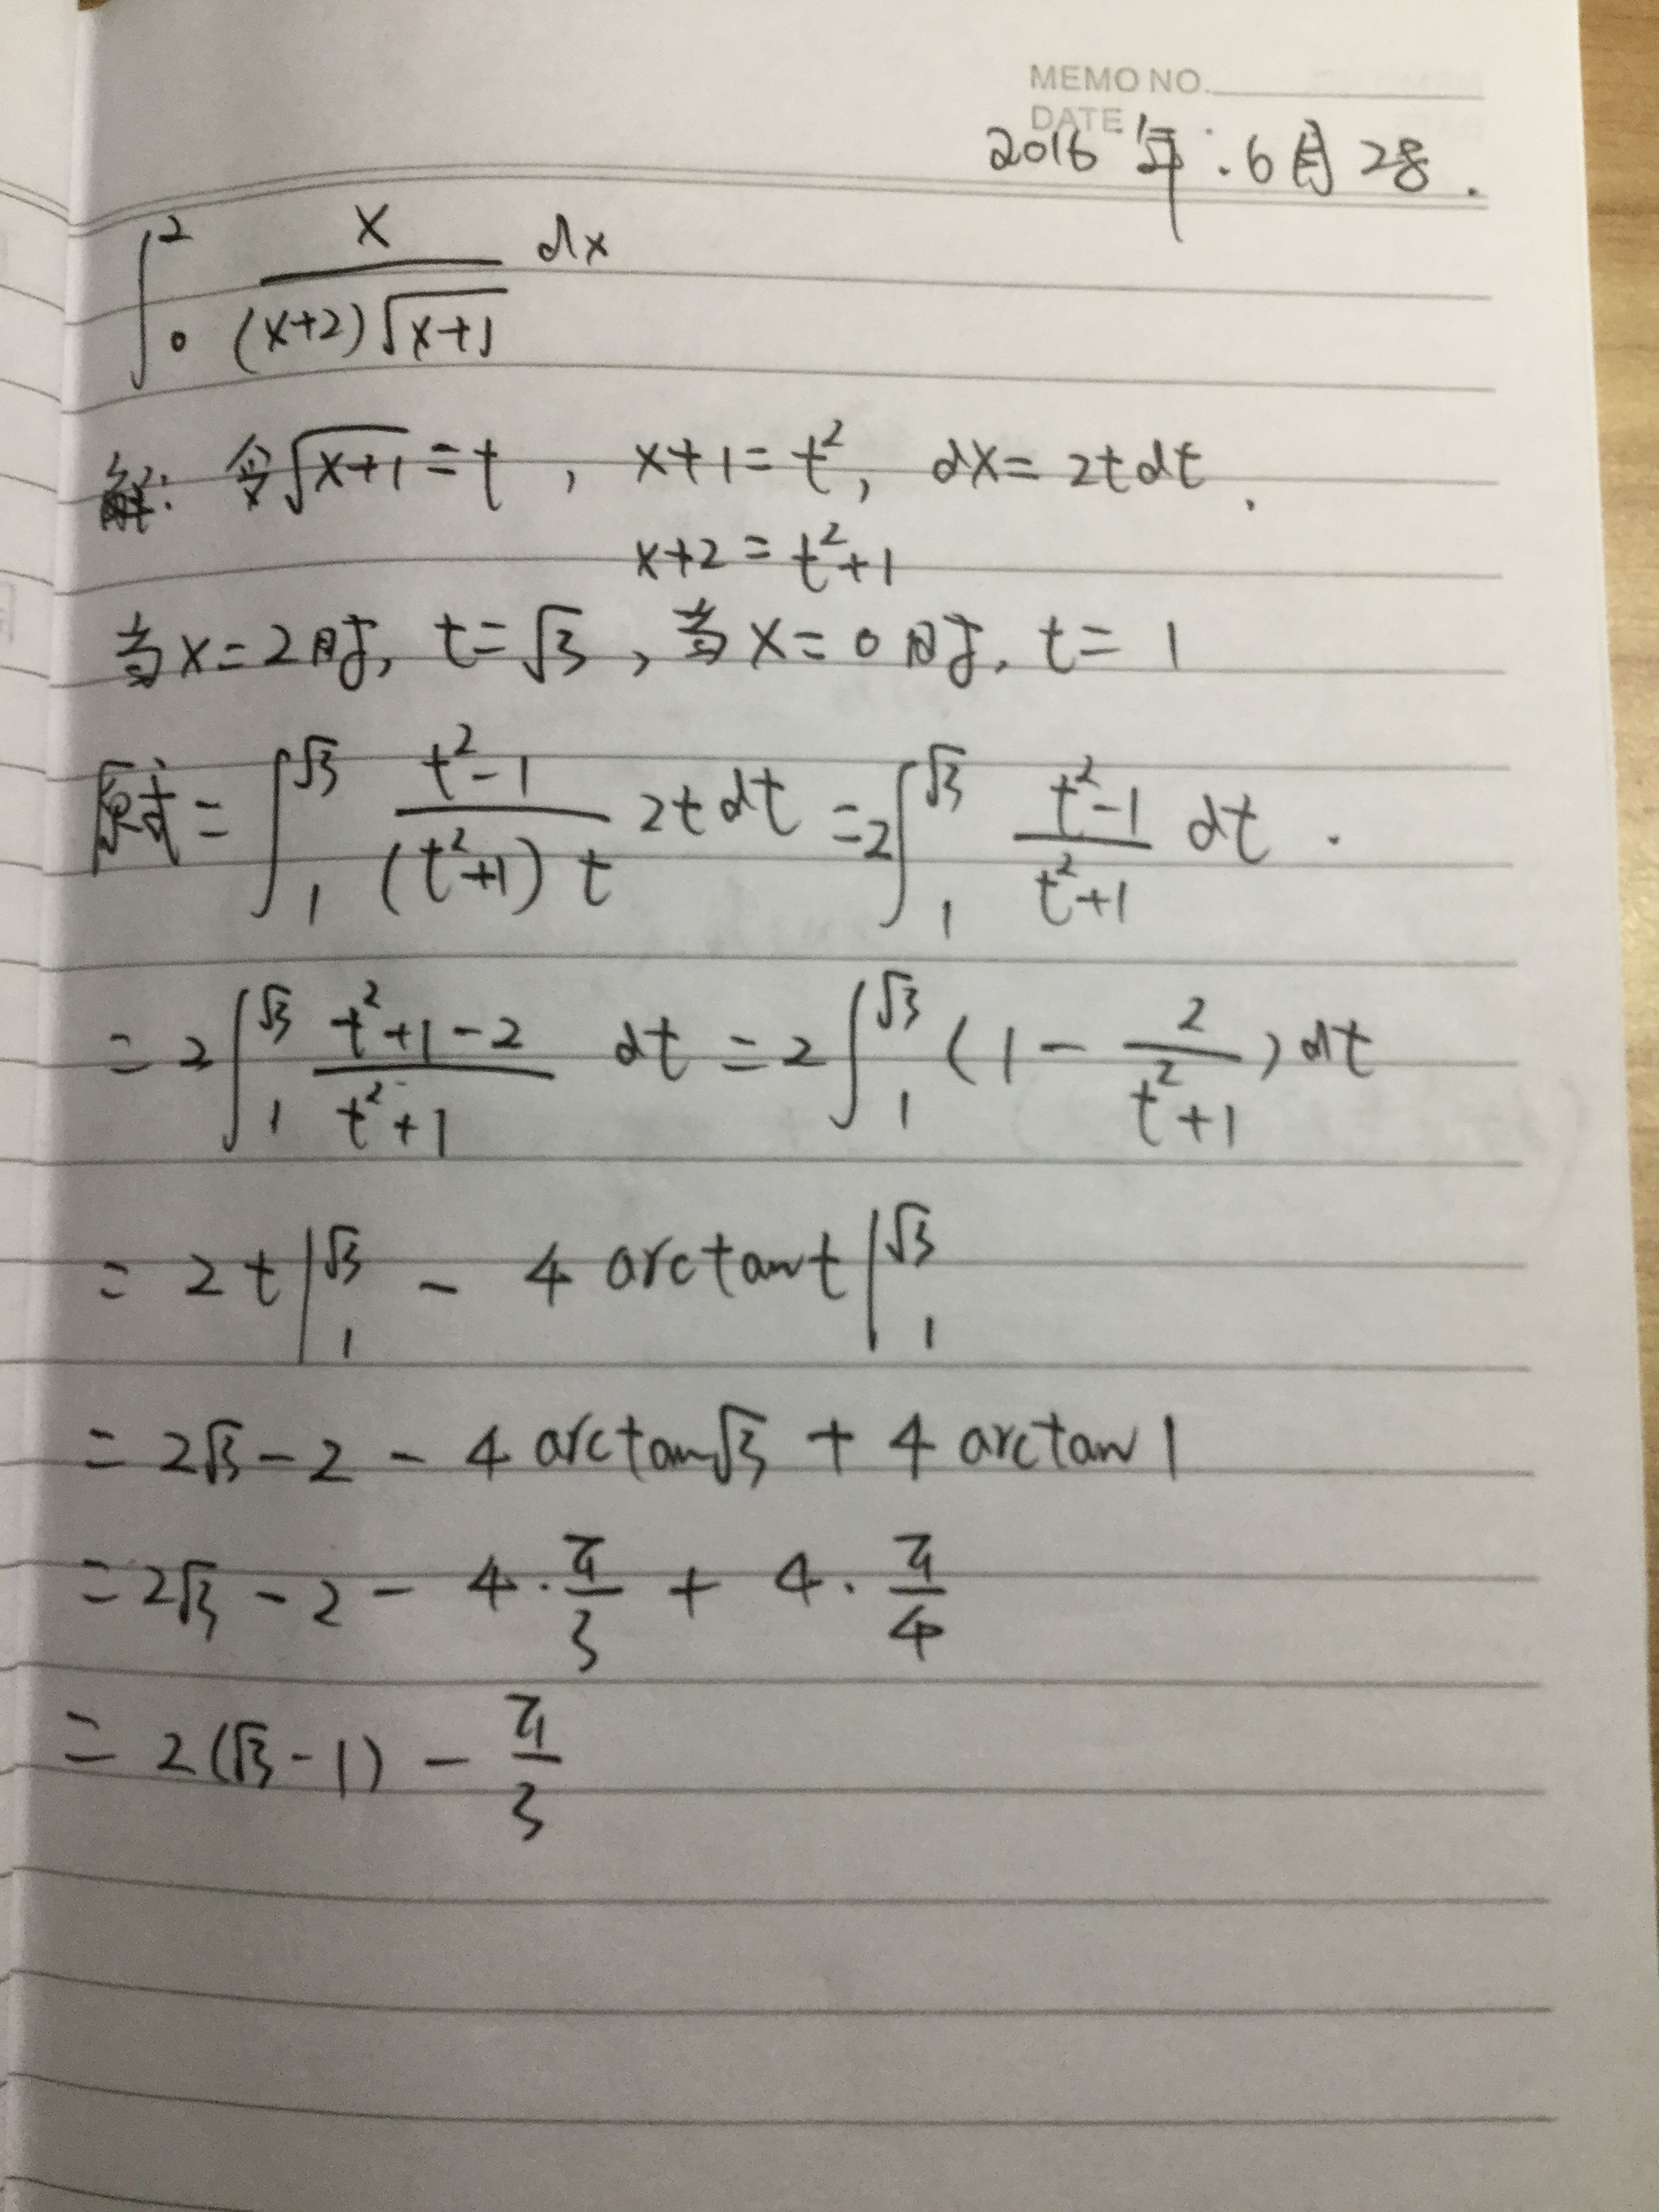 MEMO NO.
DATE
2016年.6月28.
∫₀² x/((x+2)√(x+1)) dx
解: 令√(x+1)=t, x+1=t², dx=2tdt.
x+2=t²+1
当x=2时, t=√3, 当x=0时, t=1
原式=∫₁^√3 (t²-1)/((t²+1)t) 2tdt=2∫₁^√3 (t²-1)/(t²+1) dt.
=2∫₁^√3 (t²+1-2)/(t²+1) dt=2∫₁^√3 (1-2/(t²+1))dt
=2t|₁^√3 - 4arctant|₁^√3
=2√3-2-4arctan√3+4arctan1
=2√3-2-4·π/3+4·π/4
=2(√3-1)-π/3